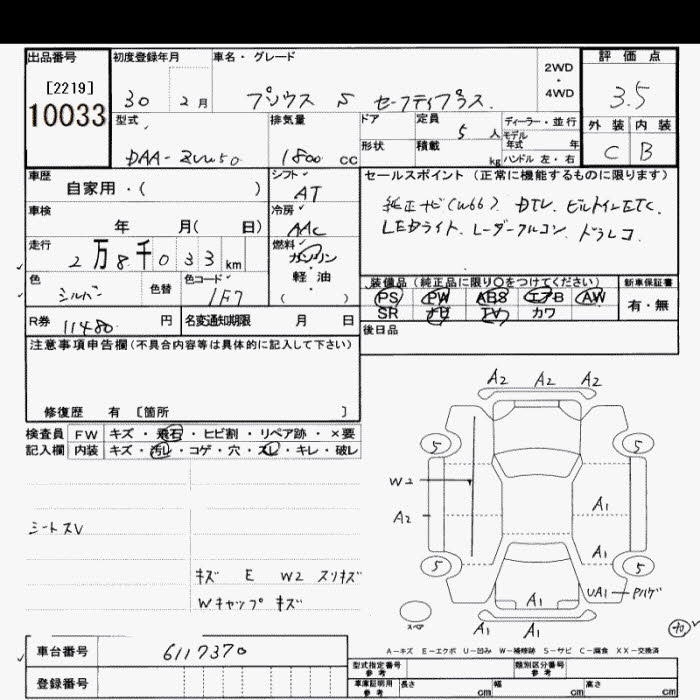 出品番号 初度登録年月 車名・グレード 2WD・4WD 評価点
[2219] 10033 30 2月 プリウス S セーフティプラス 3.5
型式 排気量 ドア 定員 5人 ディーラー・並行 外装 内装
DAA-ZVW50 1800cc 形状 積載 kg モデル年式 年 ハンドル 左・右 C B
車歴 シフト セールスポイント (正常に機能するものに限ります)
自家用・( ) AT 純正ナビ(W66) DTV. ビルトインETC.
車検 冷房 LEDライト. レーダークルコン. ドラレコ
年 月( 日) AAC
走行 燃料
2万8千033km ガソリン・軽油 ( )
色 色替 色コード 装備品 (純正品に限り○をつけてください) 新車保証書
シルバー 1F7 PS PW ABS エアB AW 有・無
SR ナビ TV カワ
R券 11480 円 名変通知期限 月 日 後日品
注意事項申告欄(不具合内容等は具体的に記入して下さい)
修復歴 有 〔箇所 〕
検査員 FW キズ・飛石・ヒビ割・リペア跡・×要
記入欄 内装 キズ・汚レ・コゲ・穴・スレ・キレ・破レ
シートスレ
キズ E W2 スリキズ
Wキャップ キズ
A2 A2 A2
5 5
W2
A2 A1
A1
5 5
A1 UA1 Pハゲ
スペア A1 A1
A-キズ E-エクボ U-凹み W-補修跡 S-サビ C-腐食 XX-交換済
車台番号 6117370
登録番号
型式指定番号 参考 類別区分番号 参考
車庫証明用 参考 長さ cm 幅 cm 高さ cm